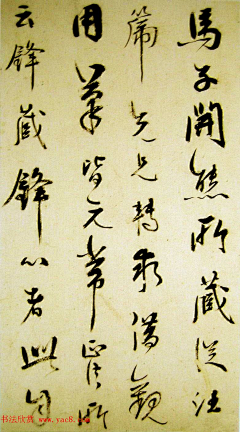 馬子開熊所藏從法
篇先兄轉求借觀
用筆皆元常正法所
云鋒藏鋒以者此自
书法欣赏 www.yac8.com